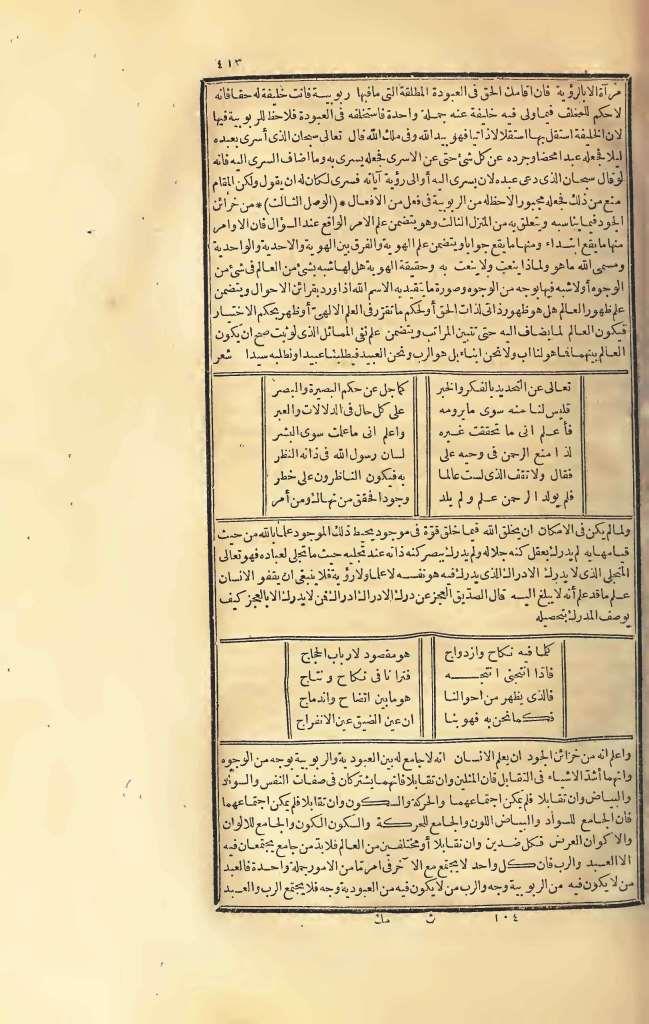 ٤١٣
مرآة الا بالرؤية فان أقامك الحق فى العبودة المطلقة التى مافيها ربوبيسة فانت خليفة له حقا فانه
لا حكم للمخلف فيما ولى فيه خليفة عنه جملة واحدة فاستخلفه فى العبودة فلاحظ للربوبية فيها
لان الخليفة استقل بها استقلالا ذاتيا فهو بيد الله وفى ملك الله قال تعالى سبحان الذى أسرى بعبده
ليلا فجعله عبدا محضا وجرده عن كل شئ حتى عن الاسرى فجعله يسرى به وما أضاف السرى اليه فانه
لو قال سبحان الذى دعى عبده لان يسرى اليه أو الى رؤية آياته فسرى لكان له ان يقول ولكن المقام
منع من ذلك فجعله مجبورا لاحظ له من الربوبية فى فعل من الافعال *(الوصل الثالث)* من خزائن
الجود فيما يناسبه ويتعلق به من المنزل الثالث وهو يتضمن علم الامر الواقع عند السؤال فان الاوامر
منها ما يقع ابتداء ومنها ما يقع جوابا ويتضمن علم الهوية والفرق بين الهوية والاحدية والواحدية
ومسمى الله ما هو ولماذا ينعت ولا ينعت به وحقيقة الهوية هل لها شبه بشئ من العالم فى شئ من
الوجوه أولا شبه فيها بوجه من الوجوه وصورة ما يتقيد به الاسم الله اذا ورد بقرائن الاحوال ويتضمن
علم ظهور العالم هل هو ظهور ذاتى لذات الحق أو لحكم ما تقرر فى العلم الالهى أو ظهر بحكم الاختيار
فيكون العالم لما يضاف اليه حتى تتبين المراتب ويتضمن علم نفى المماثل الذى لو ثبت صح ان يكون
العالم بينهما فما هو لنا أب ولا نحن أبناء بل هو الرب ونحن العبيد فيطلبنا عبيدا ونطلبه سيدا شعر
تعالى عن التحديد بالفكر والخبر كما جل عن حكم البصيرة والبصر
فليس لنا منه سوى ما يرومه على كل حال فى الدلالات والعبر
فأعلم أنى ما تحققت غيره وأعلم أنى ما علمت سوى البشر
لذا منع الرحمن فى وحيه على لسان رسول الله فى ذاته النظر
فقال ولا تقف الذى لست عالما به فيكون الناظرون على خطر
فلم يولد الرحمن علم ولم يلد وجود الحقق من نهاك ومن أمر
ولما لم يكن فى الامكان ان يخلق الله فيما خلق قوة فى موجود يحيط ذلك الموجود علما بالله من حيث
قيامها به لم يدرك بعقل كنه جلاله ولم يدرك ببصر كنه ذاته عند تجليه حيث ما تجلى لعباده فهو تعالى
المتجلى الذى لا يدرك الادراك الذى يدرك فيه هو نفسه لا علما ولا رؤية فلا ينبغى ان يقفو الانسان
علم ما قد علم أنه لا يبلغ اليه قال الصديق العجز عن درك الادراك ادراك فمن لا يدرك الا بالعجز كيف
يوصف المدرك بتحصيله
كلما فيه نكاح وازدواج هو مقصود لارباب الحجاج
فاذا أنتجنى أنتجه فترانا فى نكاح ونتاج
فالذى يظهر من أحوالنا هو ما بين اتضاح واندماج
فكما نحن به فهو بنا ان عين الضيق عين الانفراج
واعلم انه من خزائن الجود ان يعلم الانسان انه لا جامع له بين العبودية والربوبية بوجه من الوجوه
وانهما أشد الاشياء فى التقابل فان المثلين وان تقابلا فانهما يشتركان فى صفات النفس والسواد
والبياض وان تقابلا فلم يمكن اجتماعهما والحركة والسكون وان تقابلا فلم يمكن اجتماعهما
فان الجامع للسواد والبياض اللون والجامع للحركة والسكون الكون والجامع للالوان
والاكوان العرض فكل ضدين وان تقابلا أو مختلفين من العالم فلا بد من جامع يجتمعان فيه
الا العبد والرب فان كل واحد لا يجتمع مع الآخر فى أمر ما من الامور جملة واحدة فالعبد
من لا يكون فيه من الربوبية وجه والرب من لا يكون فيه من العبودية وجه فلا يجتمع الرب والعبد
١٠٤ ث مك